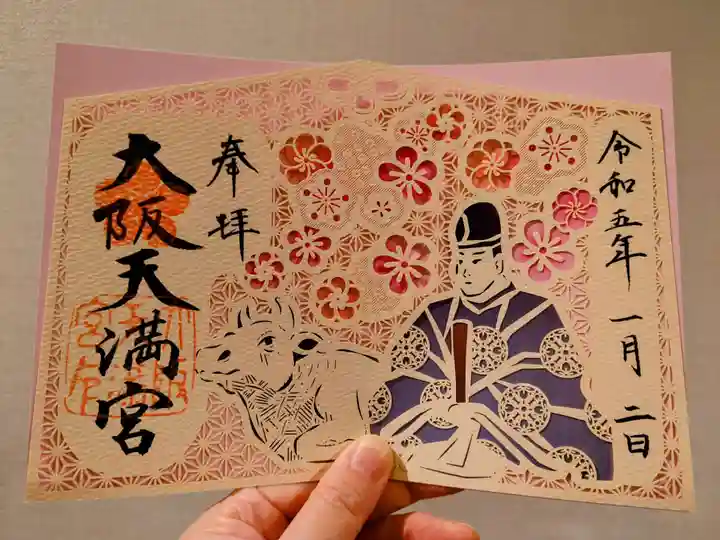 令和五年 一月 二日
奉拝
大阪天満宮